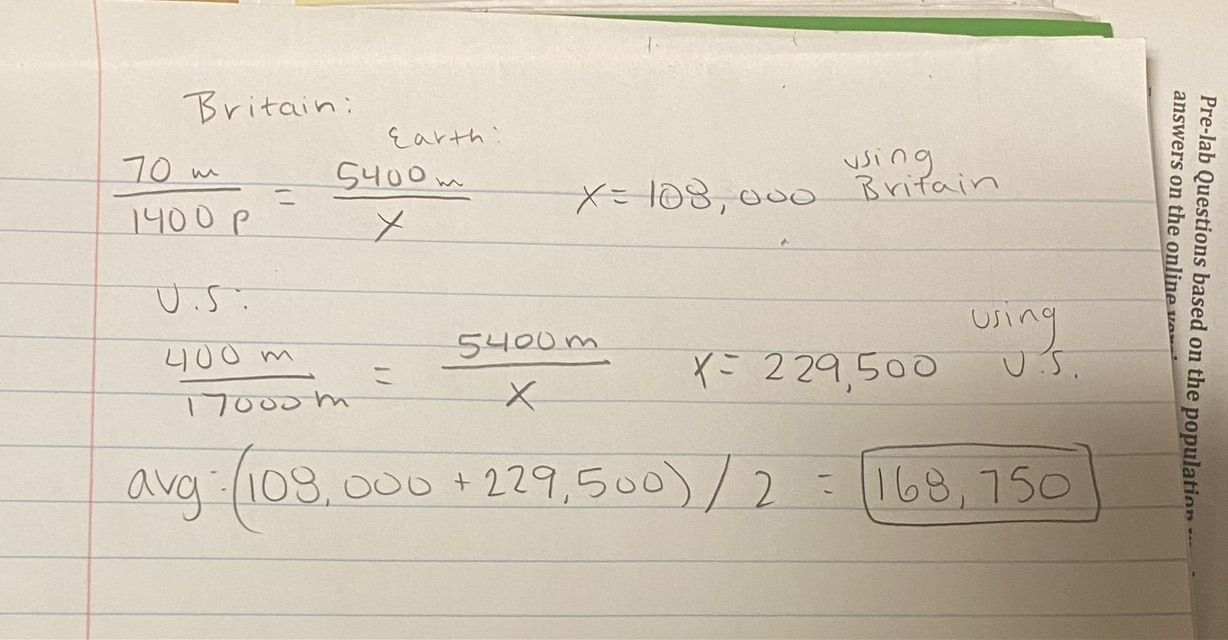 Britain:
Earth:
70 m / 1400 p = 5400 m / X   x = 108,000 using Britain
U.S:
400 m / 17000 m = 5400 m / X   x = 229,500 using U.S.
avg: (108,000 + 229,500) / 2 = 168,750
Pre-lab Questions based on the population
answers on the online